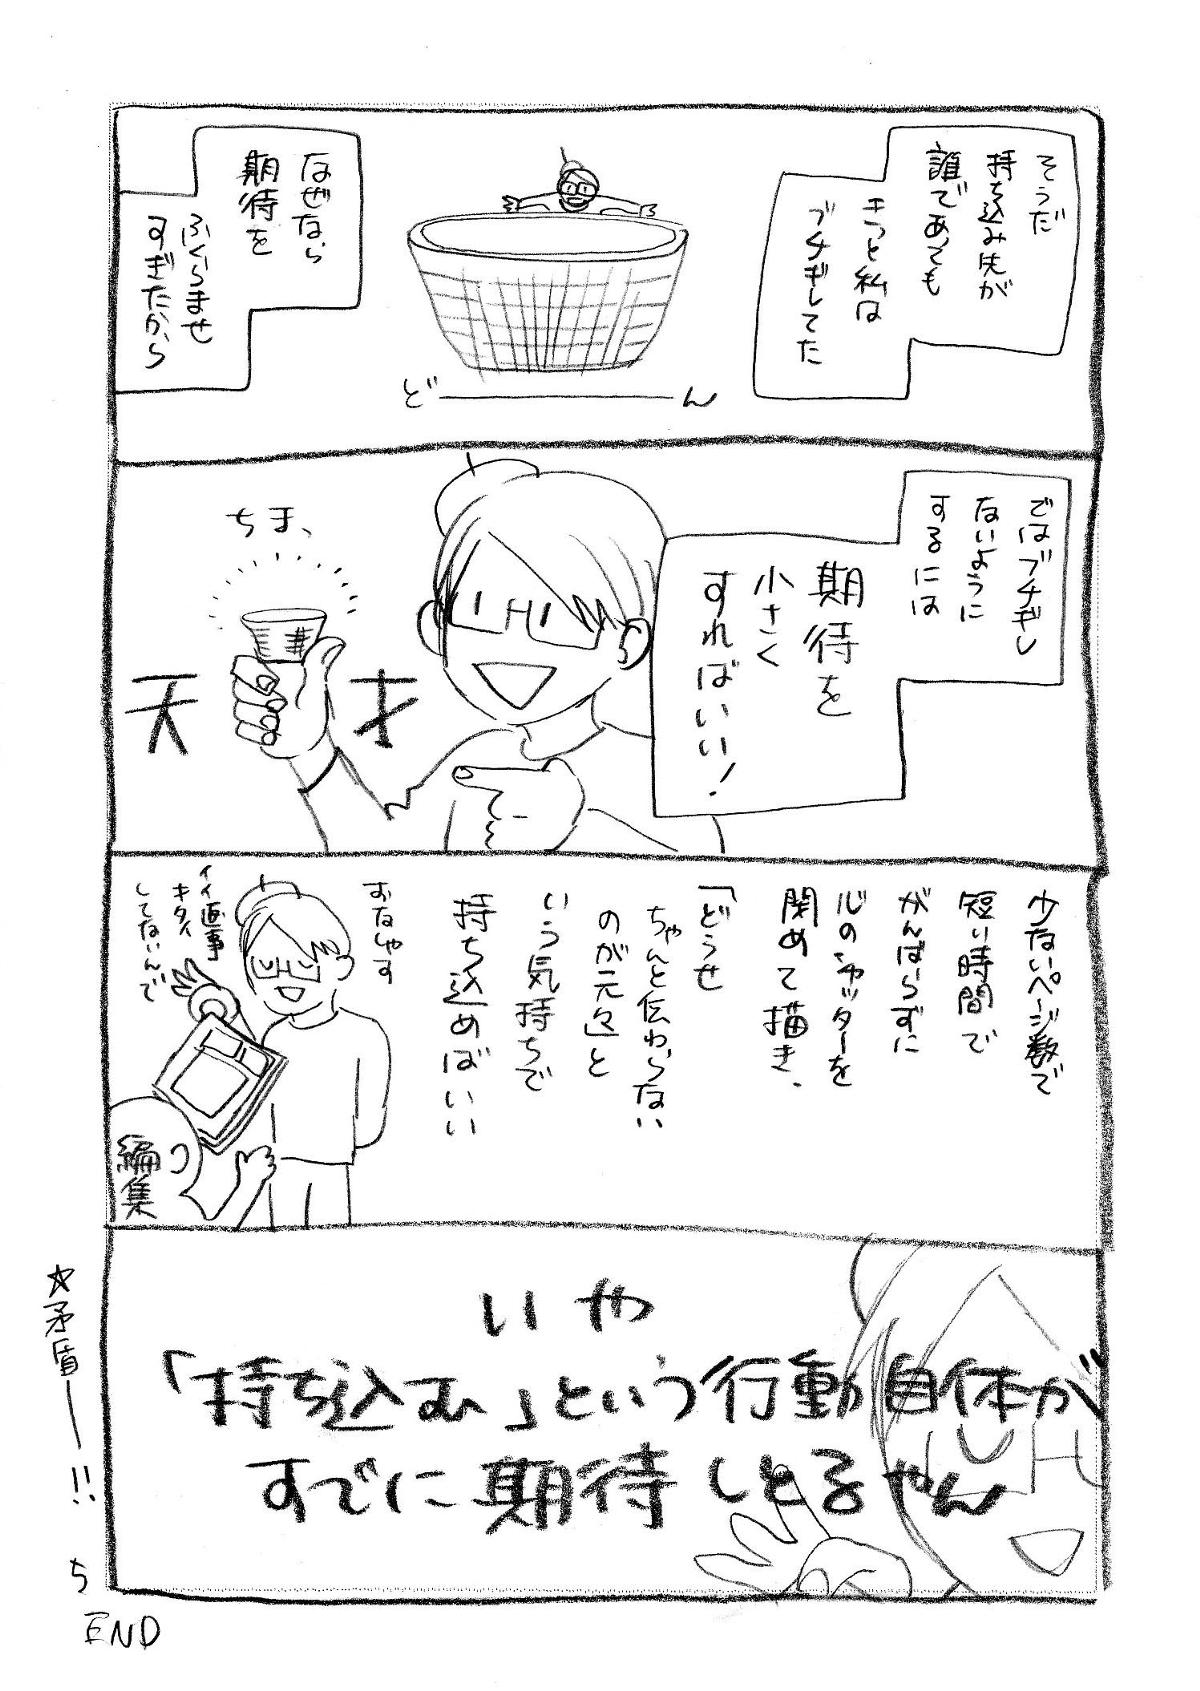 そうだ
持ち込み先が
誰であっても
きっと私は
ブチギレてた
ど――――ん
なぜなら
期待を
ふくらませ
すぎたから
ではブチギレ
ないように
するには
期待を
小さく
すればいい!
ちま、
天才
少ないページ数で
短い時間で
がんばらずに
心のシャッターを
閉めて描き、
「どうせ
ちゃんと伝わらない
のが元々」と
いう気持ちで
持ち込めばいい
おなしゃす
イイ返事
キタイ
してないんで
編集
いや
「持ち込む」という行動自体が
すでに期待しとるやん
☆矛盾――!!
5
END